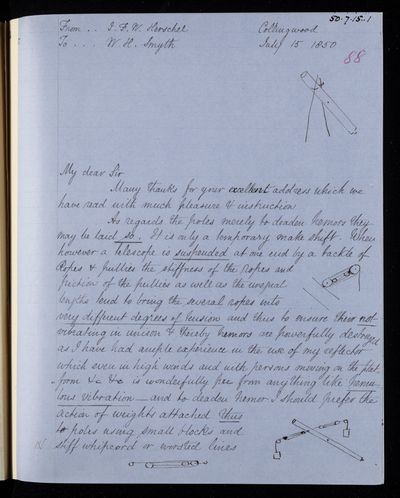 50·7·15·1
From . . J. F. W. Herschel Collingwood
To . . . W. H. Smyth July 15 1850
88
My dear Sir
Many thanks for your excellent address which we
have read with much pleasure & instruction
As regards the poles merely to deaden tremors they
may be laid so. It is only a temporary make shift. When
however a telescope is suspended at one end by a tackle of
Ropes & pullies the stiffness of the ropes and
friction of the pullies as well as the unequal
lengths tend to bring the several ropes into
very different degrees of tension and thus to ensure their not
vibrating in unison & thereby tremors are powerfully destroyed
as I have had ample experience in the use of my reflector
which even in high winds and with persons moving on the plat
-form &c &c is wonderfully free from anything like tremu-
lous vibration — and to deaden tremor I should prefer the
action of weights attached thus
to poles using small blocks and
stiff whipcord or worsted lines